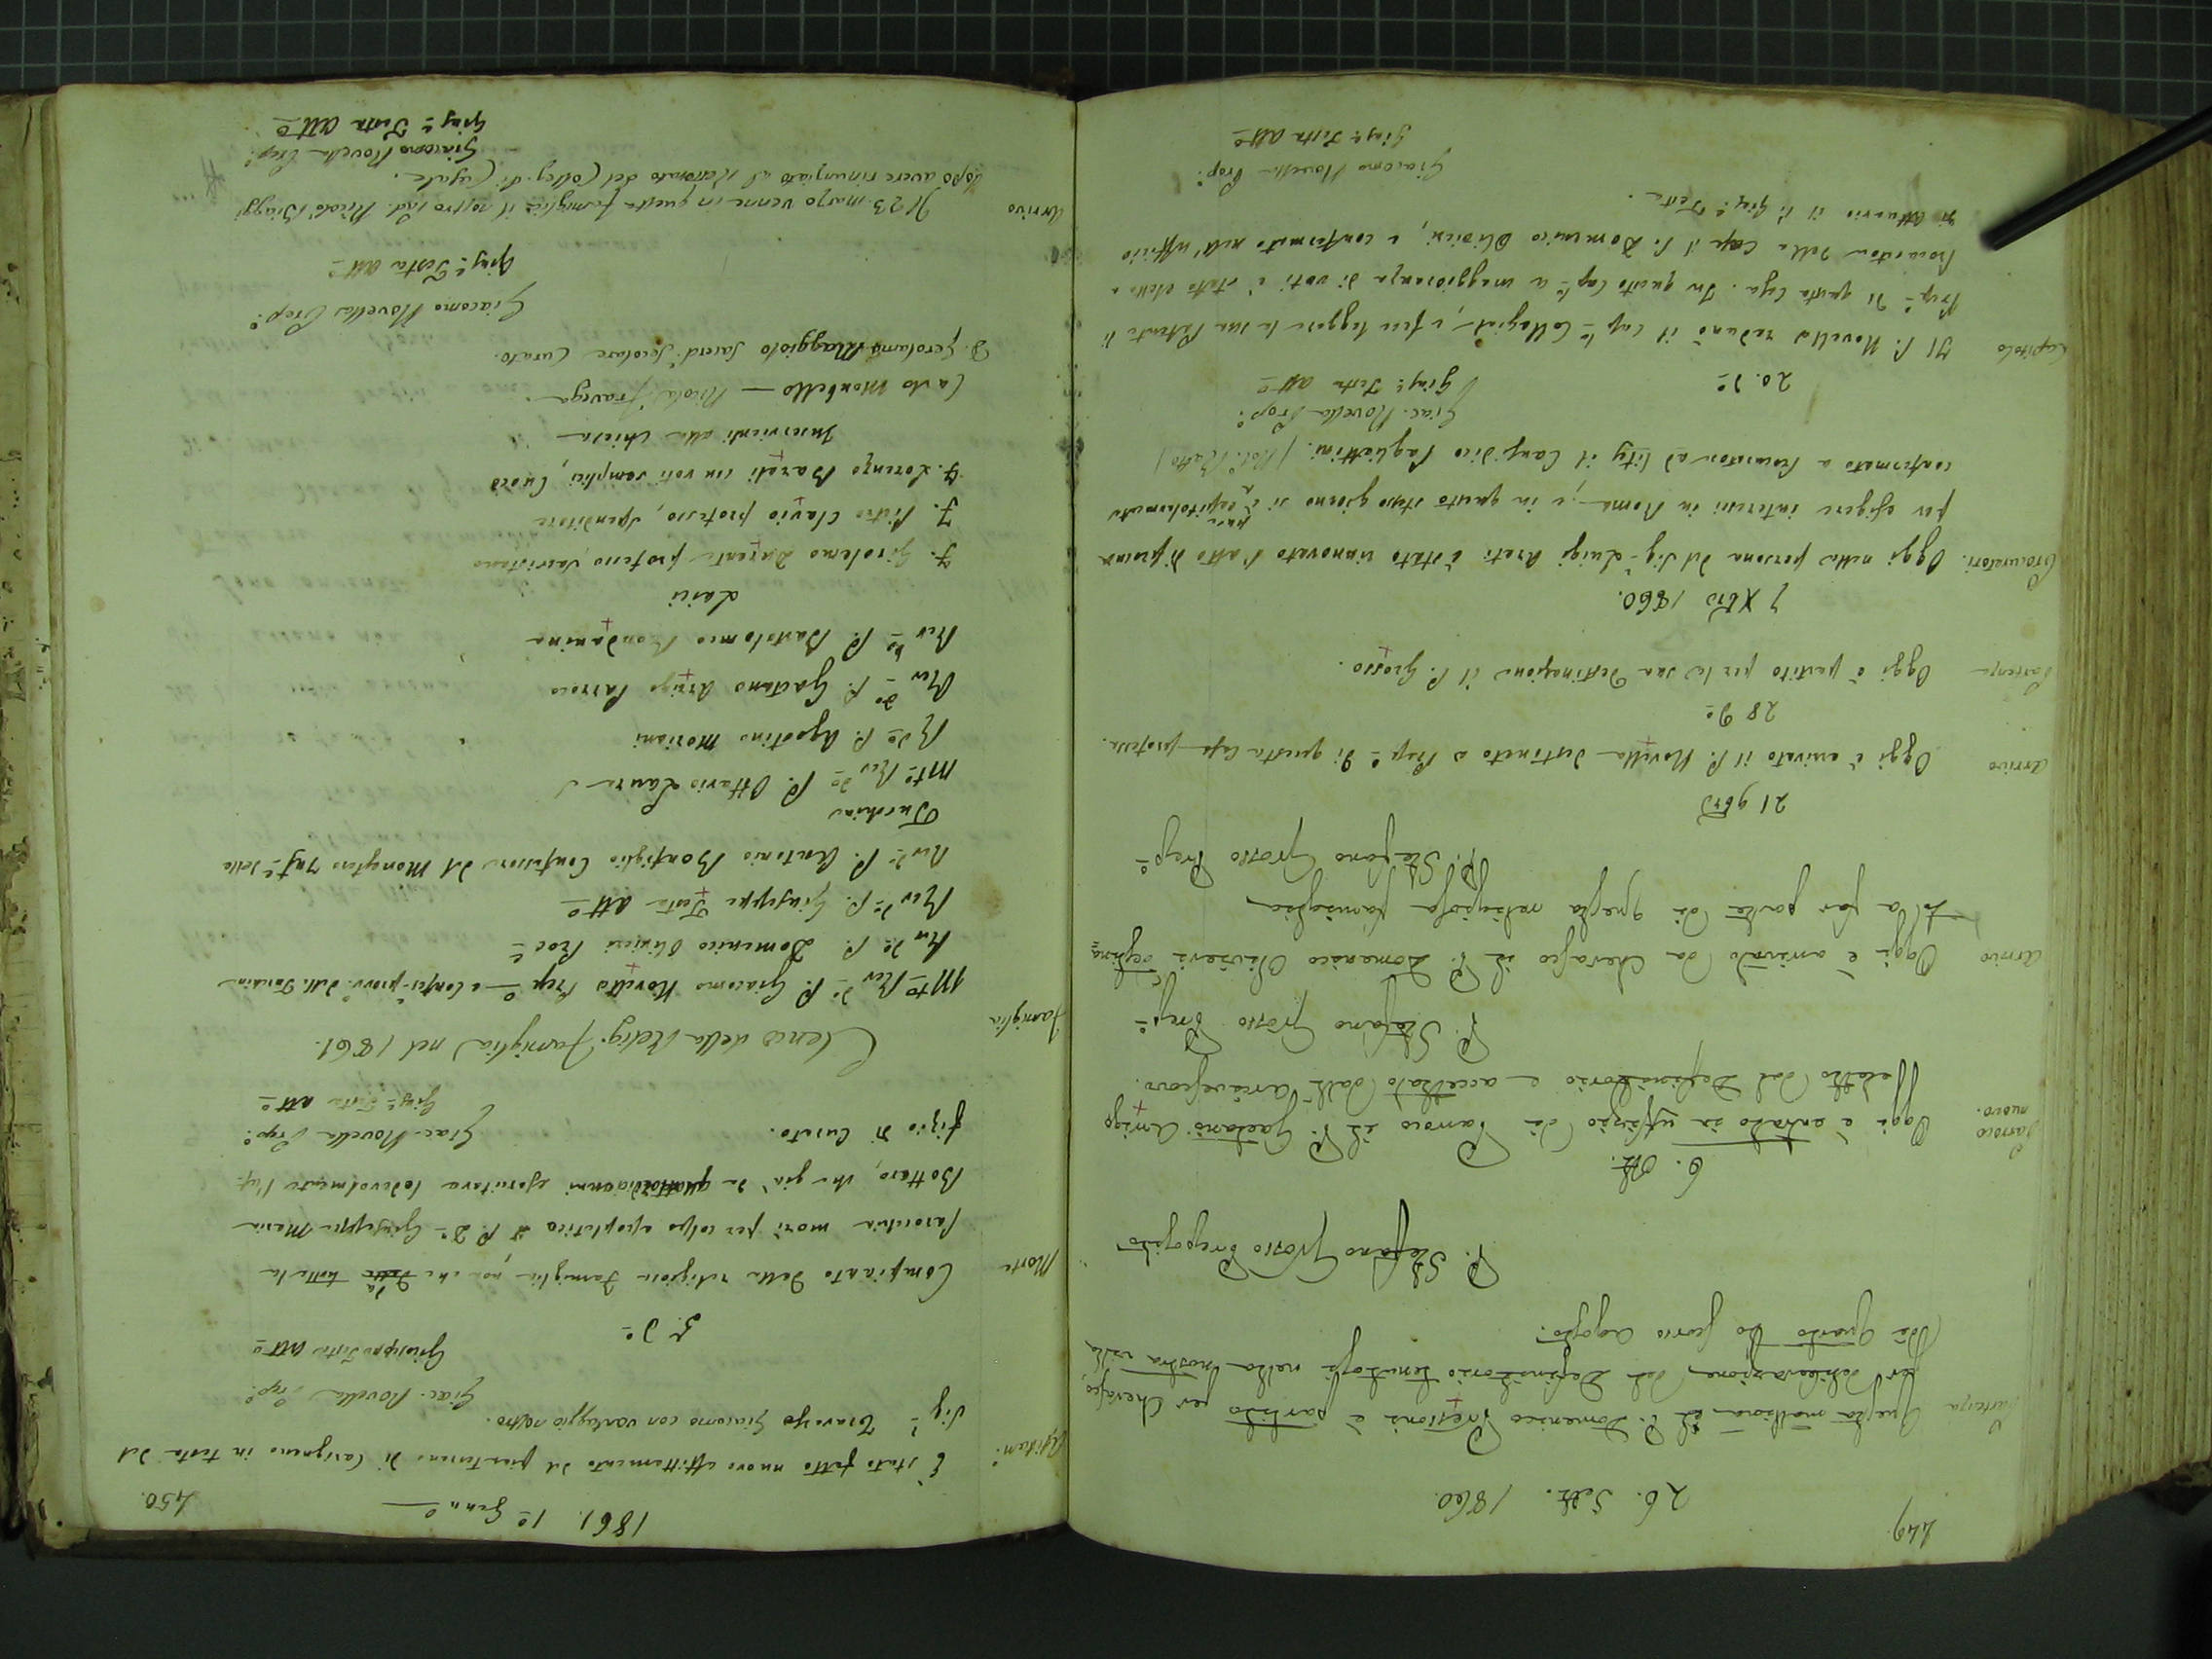 449.
26. Sett. 1860.
Partenza Questa mattina il P. Domenico Pressoni è partito per Cherasco,
per deliberazione del Definitorio tenutosi nella nostra villa
di Quarto lo scorso Agosto.
P. Stefano Grosso Preposito
6. Ott.
Parroco nuovo. Oggi è entrato in uffizio di Parroco il P. Gaetano Arrigo
eletto dal Definitorio e accettato dall' Arcivescovo.
P. Stefano Grosso Prepo
Arrivo Oggi è arrivato da Cherasco il P. Domenico Olivieri destina=
to a far parte di questa religiosa famiglia
P. Stefano Grosso Prepo
21 9bre
Arrivo Oggi è arrivato il P. Novella destinato a Prepo di questa Casa professa.
28 do
Partenza Oggi è partito per la sua destinazione il P. Grosso.
7 Xbre 1860.
Procuratori. Oggi nella persona del Sigr Luigi Areti è stato rinnovato l'atto di procura
per esigere interessi in Roma; e in questo stesso giorno si è pure capitolarmente
confermato a Procuratore ad lites il Causidico Pagliettini. (Not. Batto)
Giac. Novella Prepo
Giuse Testa Atto
20. do
Capitolo Il P. Novella radunò il Caplo Collegiale, e fece leggere la sua Patente di
Prepo di questa Casa. In questo Caplo a maggioranza di voti è stato eletto a
Procuratore della Casa il P. Domenico Olivieri, e confermato nell'ufficio
di Attuario il P. Giuse Testa.
Giacomo Novella Prepo
Giuse Testa Atto
450.
1861. 1o Genno
Affittamo È stato fatto nuovo affittamento del pianterreno di Carignano in testa del
Sigr Traverso Giacomo con vantaggio nostro.
Giac. Novella Prepo
Giuseppe Testa Atto
5. do
Morte Compianto dalla religiosa Famiglia, non che da tutta la
Parocchia morì per colpo apopletico il P. Do Giuseppe Maria
Bottaro, che già da quattordici anni esercitava lodevolmente l'uf-
fizio di Curato.
Giac. Novella Prepo
Giuse Testa Atto
Elenco della Relig. Famiglia nel 1861.
Famiglia Mto Revdo P. Giacomo Novella Prepo e Confesse provv. delle Turchine
Revdo P. Domenico Olivieri Proce
Revdo P. Giuseppe Testa Atto
Revdo P. Antonio Bonfiglio Confessore del Monastero delle
Turchine
Mto Revdo P. Ottavio Laura
Rdo P. Agostino Moriani
Revdo P. Gaetano Arrigo Parroco
Revdo P. Bartolomeo Rondanina
Laici
F. Girolamo Durante professo, sacristano
F. Pietro Clavio professo, spenditore
F. Lorenzo Bareti con voti semplici, Cuoco
Inservienti alla chiesa
Carlo Morbello — Nicola Travega.
D. Gerolamo Maggiolo Sacerd. Secolare Curato.
Giacomo Novella Prepo
Giuse Testa Atto
Arrivo Il 23. marzo venne in questa famiglia il nostro Pad. Nicolò Biaggi
dopo avere rinunziato al Rettorato del Colleg. di Casale.
Giacomo Novella Prepo
Giuse Testa Atto